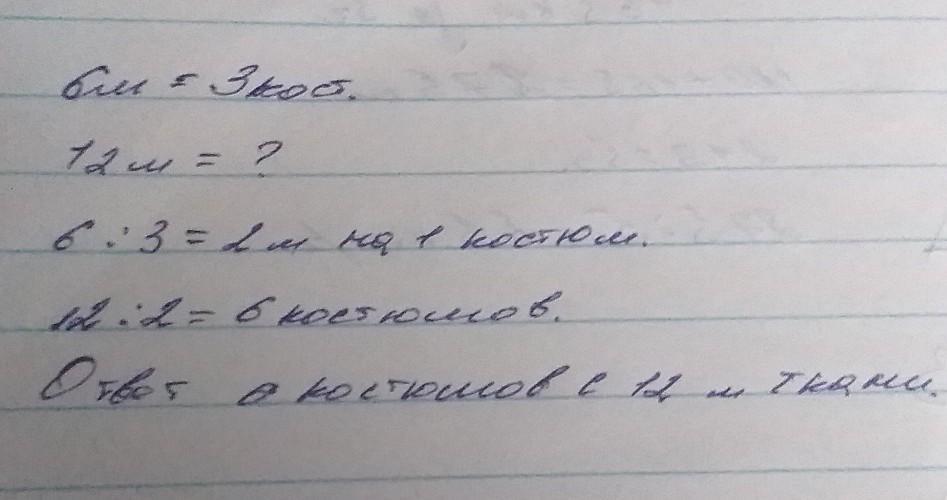 6м = 3 кос.
12м = ?
6 : 3 = 2 м на 1 костюм.
12 : 2 = 6 костюмов.
Ответ 6 костюмов с 12 м ткани.